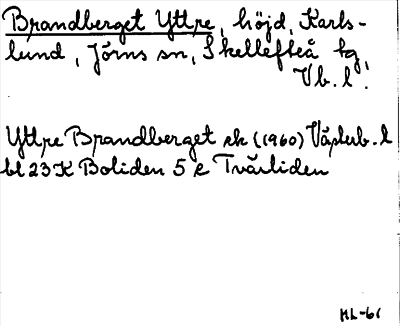 Brandberget Yttre, höjd, Karls-
lund, Jörns sn, Skellefteå tg,
Vb. l.
Yttre Brandberget ek (1960) Västerb. l
bl 23 K Boliden 5 e Tvärliden
HL-61